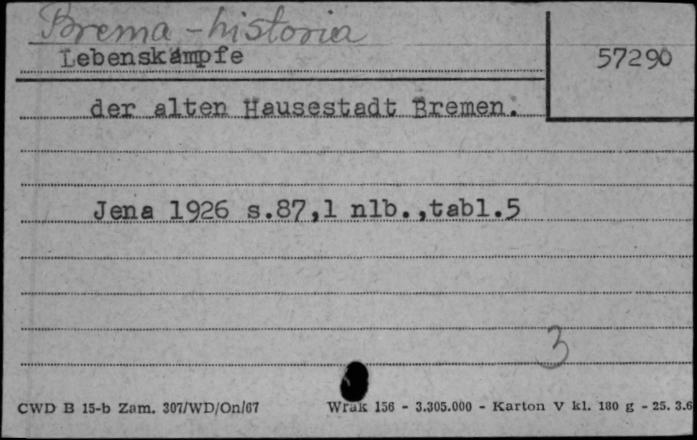 Brema - historia
Lebenskämpfe
57290
der alten Hausestadt Bremen.
Jena 1926 s.87,1 nlb.,tabl.5
3
CWD B 15-b Zam. 307/WD/On/67
Wrak 156 - 3.305.000 - Karton V kl. 180 g - 25. 3.6